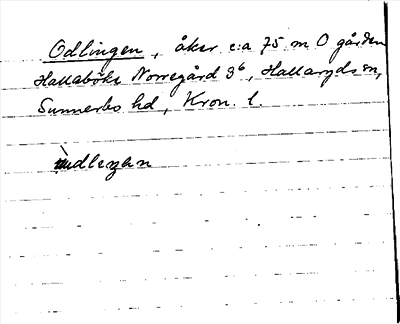 Odlingen, åker c:a 75 m O gården
Hallaböke Norregård 3⁶, Hallaryds sn,
Sunnerbo hd, Kron. l.